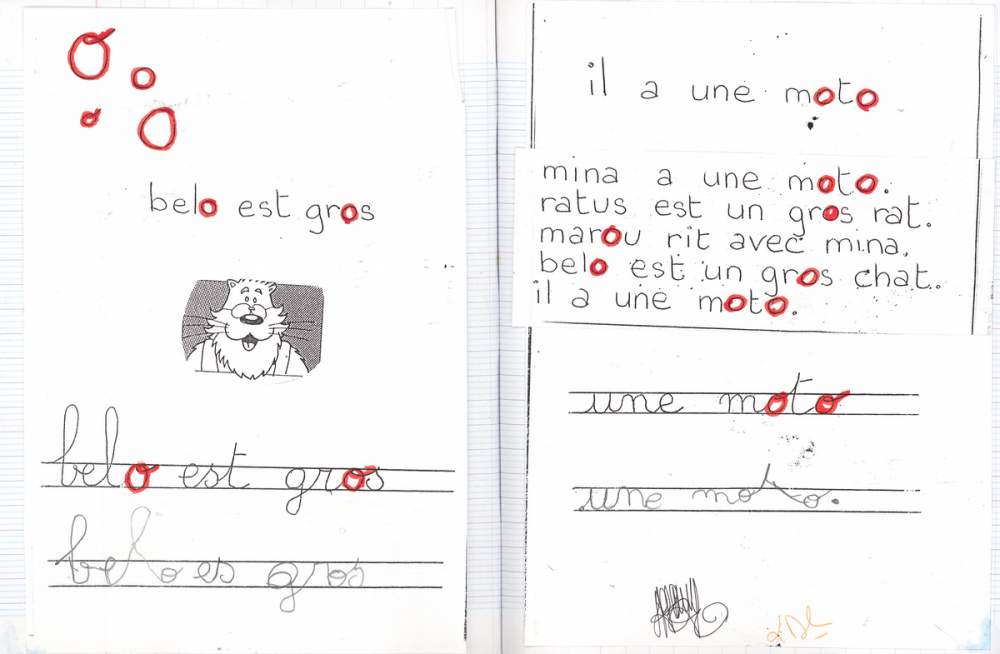 O o
o O
belo est gros
belo est gros
belo es gros
il a une moto
mina a une moto.
ratus est un gros rat.
marou rit avec mina,
belo est un gros chat.
il a une moto.
une moto
une moto.